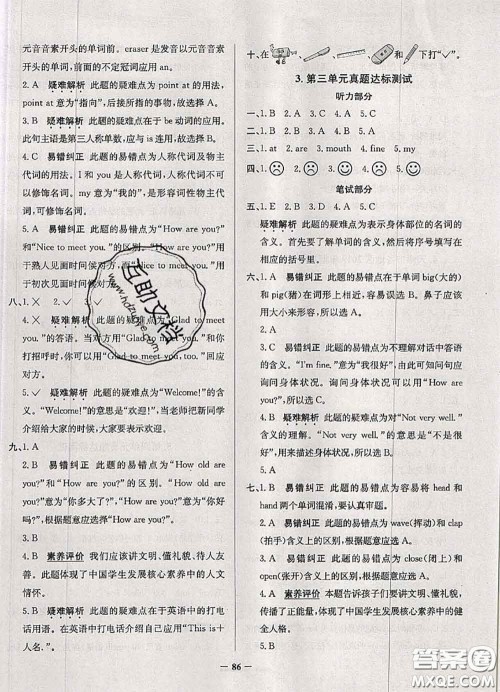 元音音素开头的单词前。eraser 是发音以元音音素
开头的单词,前面的不定冠词应用 an。
2. A 疑难解析 此题的疑难点在于 point at 的用法,
point at 意为“指向”,后接指向的物品,故选择 A。
3. B 疑难解析 此题的疑难点在于 be 动词的应用。
此句主语是第三人称单数,应与 is 连用,故选择 B。
4. C 易错纠正 此题的易错点在于人称代词及物主
代词的用法。I 和 you 是人称代词,人称代词不
可以修饰名词。my 意为“我的”,是形容词性物主代
词,可修饰名词。
5. A 易错纠正 此题的易错点在于“How are you?”
和“Nice to meet you.”的区别。“How are you?”用
于熟人见面时问候对方,而“Nice to meet you.”用
于初次见面时问候对方。
八、1. × 2. ✓ 3. ✓
4. × 疑难解析 此题的疑难点为“Glad to meet
you.”的答语。当对方说“Glad to meet you.”和你
打招呼时,可以用“Glad to meet you, too.”回应
对方。
5. ✓ 疑难解析 此题的疑难点为“Welcome!”的含
义。“Welcome!”的意思是“欢迎!”,当老师把新同学
介绍给大家的时候,大家要表示欢迎。
九、1. A
2. B 易错纠正 此题的易错点为“How old are
you?”和“How are you?”的区别。“How old are
you?”意为“你多大了?”,“How are you?”意为“你
好吗?”,根据题意应选择“How are you?”
3. B
4. B 素养评价 我们应该讲文明、懂礼貌、待人友
善。此题体现了中国学生发展核心素养中的人文
情怀。
5. B 疑难解析 此题的疑难点在于英语中的打电
话用语。在英语中打电话介绍自己应用“This is+
人名.”
十、在 和 下打“✓”。
3. 第三单元真题达标测试
听力部分
一、1. C 2. A 3. A 4. A 5. C
二、1. A 2. A 3. A 4. A 5. A
三、1. at 2. are 3. mouth 4. fine 5. my
四、1. 2. 3. 4. 5.
笔试部分
五、1. E 2. B 3. D 4. A 5. C
疑难解析 此题的疑难点为表示身体部位的名词的
含义。首先要了解单词的含义,然后将序号填写在
相应的括号里。
六、1. B
2. B 易错纠正 此题的易错点在于单词 big(大的)
和 pig(猪)在词形、词义上的区别。鼻子应该很
大,所以选择 B。
3. A
七、1. A
2. A
3. B 易错纠正 此题的易错点为不理解对话中答语
的含义。“I'm fine.”意为“我很好”,由此可知问句应
询问身体状况,根据选项可知询问身体状况用“How
are you?”,所以选 B。
4. B 疑难解析 此题的疑难点为对“Not very well.”
的含义的理解。“Not very well.”的意思是“不是很
好”,用来描述身体状况,所以选 B。
5. A
八、1. A
2. B 易错纠正 此题的易错点为容易将 head 和
hand 两个单词混淆,要认真审题。
3. B
4. A 易错纠正 此题的易错点为 wave(挥动)和 clap
(拍手)含义上的区别,根据题意应选 A
5. A 易错纠正 此题的易错点为 close(闭上)和
open(张开)含义上的区别,根据题意应选 A。
九、1. A
2. B 素养评价 本题告诉孩子们要讲文明、懂礼貌、
传播正能量,体现了中国学生发展核心素养中的健
全人格。
3. B 4. A 5. B
— 86 —
互助文档
www.hdzuoye.com
答案圈
MXQE.COM